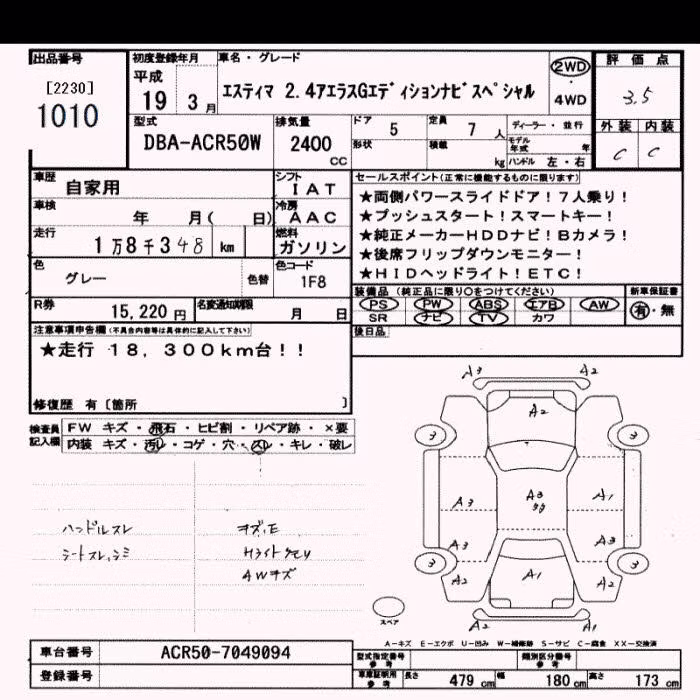 出品番号
[2230]
1010
初度登録年月
平成
19 3月
車名・グレード
エスティマ 2.4アエラスGエディションナビスペシャル
2WD
・
4WD
評価点
3.5
外装 内装
C C
型式
DBA-ACR50W
排気量
2400
cc
ドア 5
定員 7 人
形状
積載 kg
ディーラー・並行
モデル年式 年
ハンドル 左・右
車歴
自家用
シフト
IAT
車検
年 月( 日)
冷房
AAC
走行
1万8千348 km
燃料
ガソリン
色
グレー
色替
色コード
1F8
R券
15,220円
名変通知期限
月 日
セールスポイント(正常に機能するものに限ります)
★両側パワースライドドア!7人乗り!
★プッシュスタート!スマートキー!
★純正メーカーHDDナビ!Bカメラ!
★後席フリップダウンモニター!
★HIDヘッドライト!ETC!
装備品(純正品に限り○をつけてください)
PS PW ABS エアB AW
SR ナビ TV カワ
新車保証書
有・無
後日品
注意事項申告欄(不具合内容等は具体的に記入して下さい)
★走行 18,300km台!!
修復歴 有〔箇所 〕
検査員記入欄
FW キズ・飛石・ヒビ割・リペア跡・×要
内装 キズ・汚レ・コゲ・穴・スレ・キレ・破レ
ハンドルスレ
シートスレ,シミ
キズ,E
Hライトクモリ
AWキズ
A3 A2
A2
3 3
A3 A3 A1
A3 A3
3 3
A2 A1 A2
A2 A1
スペア
A-キズ E-エクボ U-凹み W-補修跡 S-サビ C-腐食 XX-交換済
車台番号
ACR50-7049094
登録番号
型式指定番号
参考
類別区分番号
参考
車庫証明用
参考
長さ 479 cm
幅 180 cm
高さ 173 cm